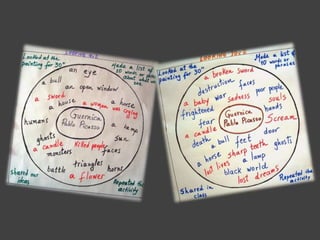 LOOKING OUT
Looked at the painting for 30"
Made a list of 10 words or phrases about what we see
an eye
a bull
an open window
a sword
a house
a woman was crying
a horse
humans
Guernica
Pablo Picasso
lamp
ghosts
sun
a candle
Killed people
faces
monsters
battle
triangles
horns
a flower
shared our ideas
Repeated the activity
Looked at the painting for 30"
Made a list of 10 words or phrases
a broken sword
destruction
faces
a baby
war
sadness
poor people
souls
frightened
hands
Guernica
Pablo Picasso
fear
Scream
a candle
death
a bull
feet
door
a horse
sharp teeth
ghosts
lost lives
a lamp
black world
lost dreams
Shared in class
Repeated the activity